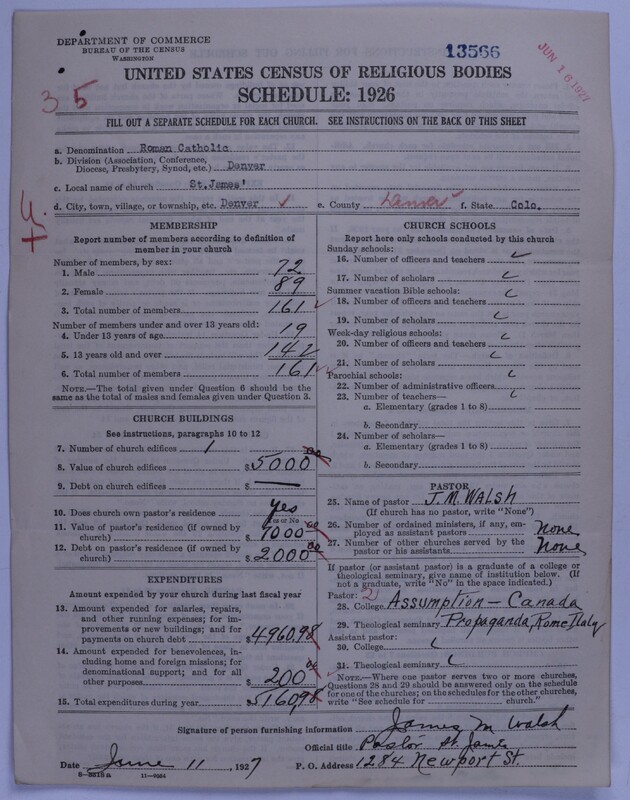 DEPARTMENT OF COMMERCE
BUREAU OF THE CENSUS
WASHINGTON
13566
JUN 16 1927
UNITED STATES CENSUS OF RELIGIOUS BODIES
SCHEDULE: 1926
35
FILL OUT A SEPARATE SCHEDULE FOR EACH CHURCH. SEE INSTRUCTIONS ON THE BACK OF THIS SHEET
a. Denomination Roman Catholic
b. Division (Association, Conference, Diocese, Presbytery, Synod, etc.) Denver
c. Local name of church St.James'
d. City, town, village, or township, etc. Denver e. County Denver f. State Colo.
MEMBERSHIP
Report number of members according to definition of
member in your church
Number of members, by sex:
1. Male 72
2. Female 89
3. Total number of members 161
Number of members under and over 13 years old:
4. Under 13 years of age 19
5. 13 years old and over 142
6. Total number of members 161
NOTE.—The total given under Question 6 should be
same as the total of males and females given under Question 3.
CHURCH BUILDINGS
See instructions, paragraphs 10 to 12
7. Number of church edifices 1
8. Value of church edifices $5000 00
9. Debt on church edifices $
10. Does church own pastor's residence yes
Yes or No
11. Value of pastor's residence (if owned by
church) $7000 00
12. Debt on pastor's residence (if owned by
church) $2000 00
EXPENDITURES
Amount expended by your church during last fiscal year
13. Amount expended for salaries, repairs,
and other running expenses; for im-
provements or new buildings; and for
payments on church debt $4960.98
14. Amount expended for benevolences, in-
cluding home and foreign missions; for
denominational support; and for all
other purposes $200 00
15. Total expenditures during year $5160.98
CHURCH SCHOOLS
Report here only schools conducted by this church
Sunday schools:
16. Number of officers and teachers
17. Number of scholars
Summer vacation Bible schools:
18. Number of officers and teachers
19. Number of scholars
Week-day religious schools:
20. Number of officers and teachers
21. Number of scholars
Parochial schools:
22. Number of administrative officers
23. Number of teachers—
a. Elementary (grades 1 to 8)
b. Secondary
24. Number of scholars—
a. Elementary (grades 1 to 8)
b. Secondary
PASTOR
25. Name of pastor J.M. WALSH
(If church has no pastor, write "None")
26. Number of ordained ministers, if any, em-
ployed as assistant pastors None
27. Number of other churches served by the
pastor or his assistants None
If pastor (or assistant pastor) is a graduate of a college or
theological seminary, give name of institution below. (If
not a graduate, write "No" in the space indicated.)
Pastor: 2
28. College Assumption — Canada
29. Theological seminary Propaganda, Rome Italy
Assistant pastor:
30. College
31. Theological seminary
NOTE.—Where one pastor serves two or more churches,
Questions 28 and 29 should be answered only on the schedule
for one of the churches; on the schedules for the other churches,
write "See schedule for church."
Signature of person furnishing information James M Walsh
Official title Pastor St. James
Date June 11, 1927 P. O. Address 1284 Newport St.
11—9084